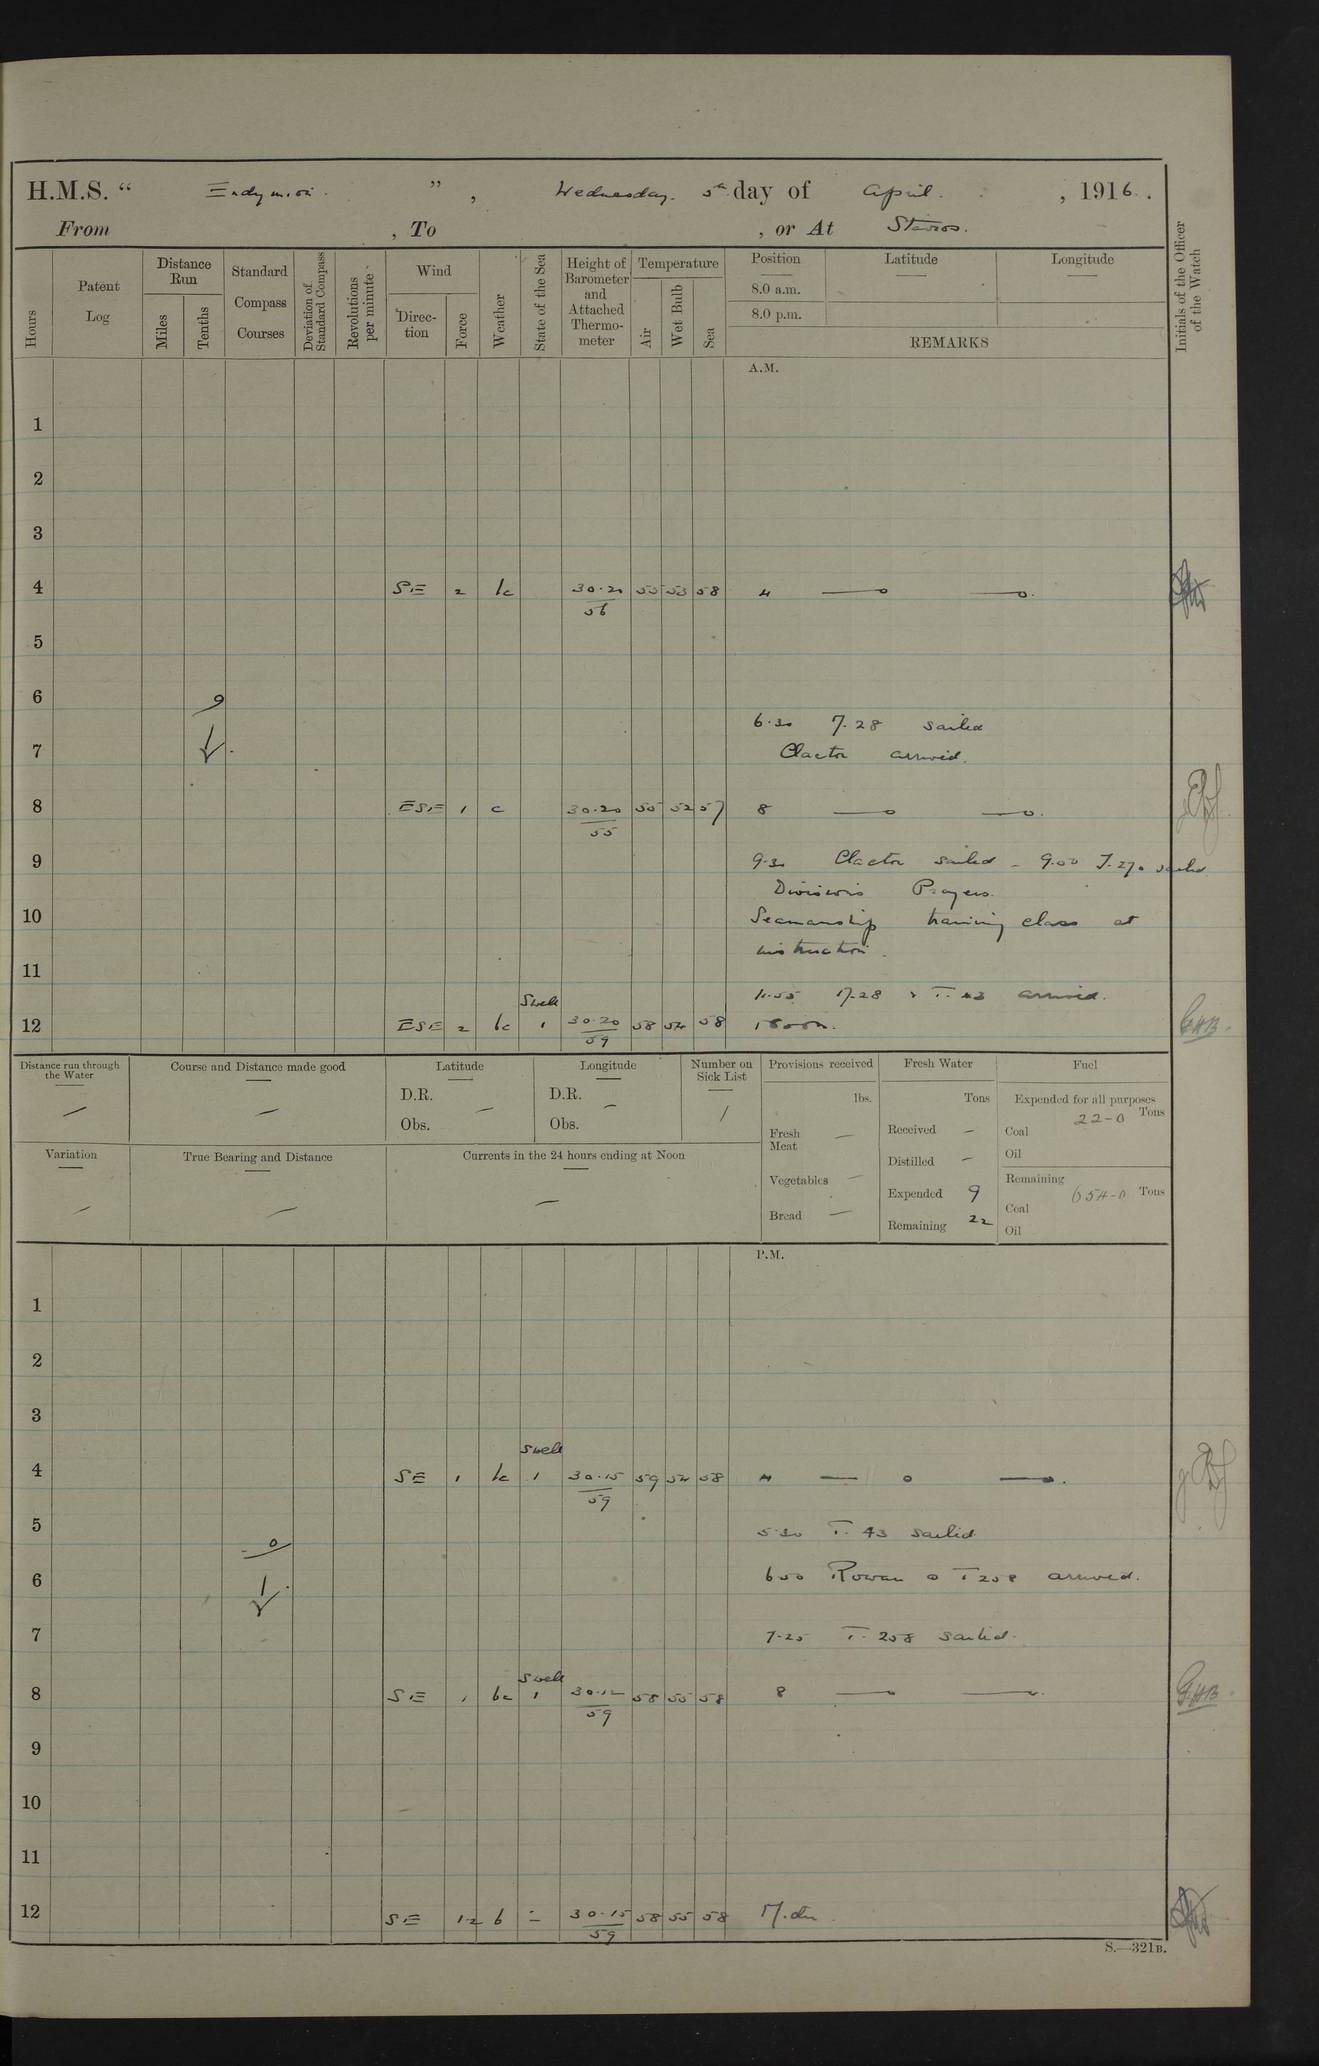 H.M.S. “ Endymion. ” , Wednesday. 5th day of April. , 1916.
From , To , or At Stavros.
Hours
Patent Log
Distance Run
Miles
Tenths
Standard Compass Courses
Deviation of Standard Compass
Revolutions per minute
Wind
Direction
Force
Weather
State of the Sea
Height of Barometer and Attached Thermometer
Temperature
Air
Wet Bulb
Sea
Position
8.0 a.m.
8.0 p.m.
Latitude
Longitude
REMARKS
Initials of the Officer of the Watch
A.M.
1
2
3
4 SE 2 bc 30.20 55 53 58 4
56
5
6
6.30 M.28 sailed
7 Clacton arrived.
8 ESE 1 c 30.20 55 52 57 8
55
9 9.30 Clacton sailed - 9.00 T.270 sailed
Divisions Prayers.
10 Seamanship training class at
instruction.
11
11.55 M.28 & T.43 arrived.
Swell
12 ESE 2 bc 1 30.20 58 54 58 Noon. GHB.
59
Distance run through the Water
Course and Distance made good
Latitude
D.R.
Obs.
Longitude
D.R.
Obs.
Number on Sick List
1
Provisions received
lbs.
Fresh Meat —
Vegetables —
Bread —
Fresh Water
Tons
Received —
Distilled —
Expended 9
Remaining 22
Fuel
Expended for all purposes
22-0 Tons
Coal
Oil
Remaining
654-0 Tons
Coal
Oil
Variation
True Bearing and Distance
Currents in the 24 hours ending at Noon
P.M.
1
2
3
Swell
4 SE 1 bc 1 30.15 59 54 58 4
59
5 5.30 T. 43 sailed.
6 6.00 Rowan & T 258 arrived.
7 7.25 T. 258 sailed.
Swell
8 SE 1 bc 1 30.12 58 55 58 8 GHB.
59
9
10
11
12 SE 1-2 b - 30.15 58 55 58 Mdn.
59
S.—321B.